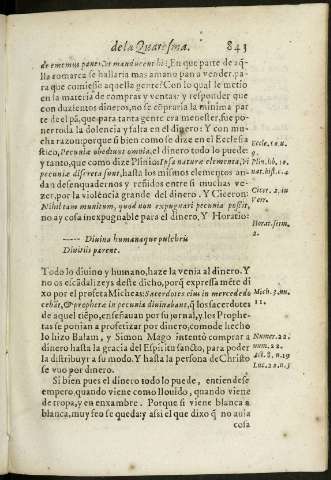 de la Quaresma. 843
de ememus panes? Vt manducent hi; En que parte de aq̃-
lla comarca se hallaria mas amano pan a vender, pa-
ra que comiesse aquella gente? Con lo qual le metio
en la materia de compras y ventas: y responder que
con duzientos dineros, no se cõpraria la minima par
te del pã, que para tanta gente era menester, fue po-
ner toda la dolencia y falta en el dinero: Y con mu-
cha razon: porque si bien como se dize en el Ecclesia
stico, Pecuniæ obediunt omnia. el dinero todo lo puede:
y tanto, que como dize Plinio: Ipsa naturæ elementa, vi
pecuniæ discreta sunt, hasta los mismos elementos an-
dan desenquadernos y reñidos entre si muchas ve-
zes, por la violẽcia grande del dinero. Y Ciceron:
Nihil tam munitum, quod non expugnari pecunia possit,
no ay cosa inexpugnable para el dinero. Y Horatio:
Eccle. 10. n.
9.
Plin. lib. 10.
nat. hist. c. 4
Cicer. 2. in
Verr.
Horat. serm.
2.
----- Diuina humanaque pulchris
Diuitiis parent.
Todo lo diuino y humano, haze la venia al dinero. Y
no os escãdalizeys deste dicho, porq̃ expressa mẽte di
xo por el profeta Micheas: Sacerdotes eius in mercede do
cebãt, & prophetæ in pecunia diuinabant, q̃ los sacerdotes
de aquel tiẽpo, enseñauan por su jornal, y los Prophe-
tas se ponian a profetizar por dinero, como de hecho
lo hizo Balam, y Simon Mago intentò comprar a
dinero hasta la gracia del Espiritu sancto, para poder
la distribuyr a su modo. Y hasta la persona de Christo
se vuo por dinero.
Mich. 3. nu.
11.
Numer. 22.
num. 22.
Act. 8. n. 19
Luc. 22. n. 5
Si bien pues el dinero todo lo puede, entiendese
empero, quando viene como llouido, quando viene
de tropa, y en enxambre. Porque si viene blanca a
blanca, muy feo se queda: y assi el que dixo q̃ no auia
cosa